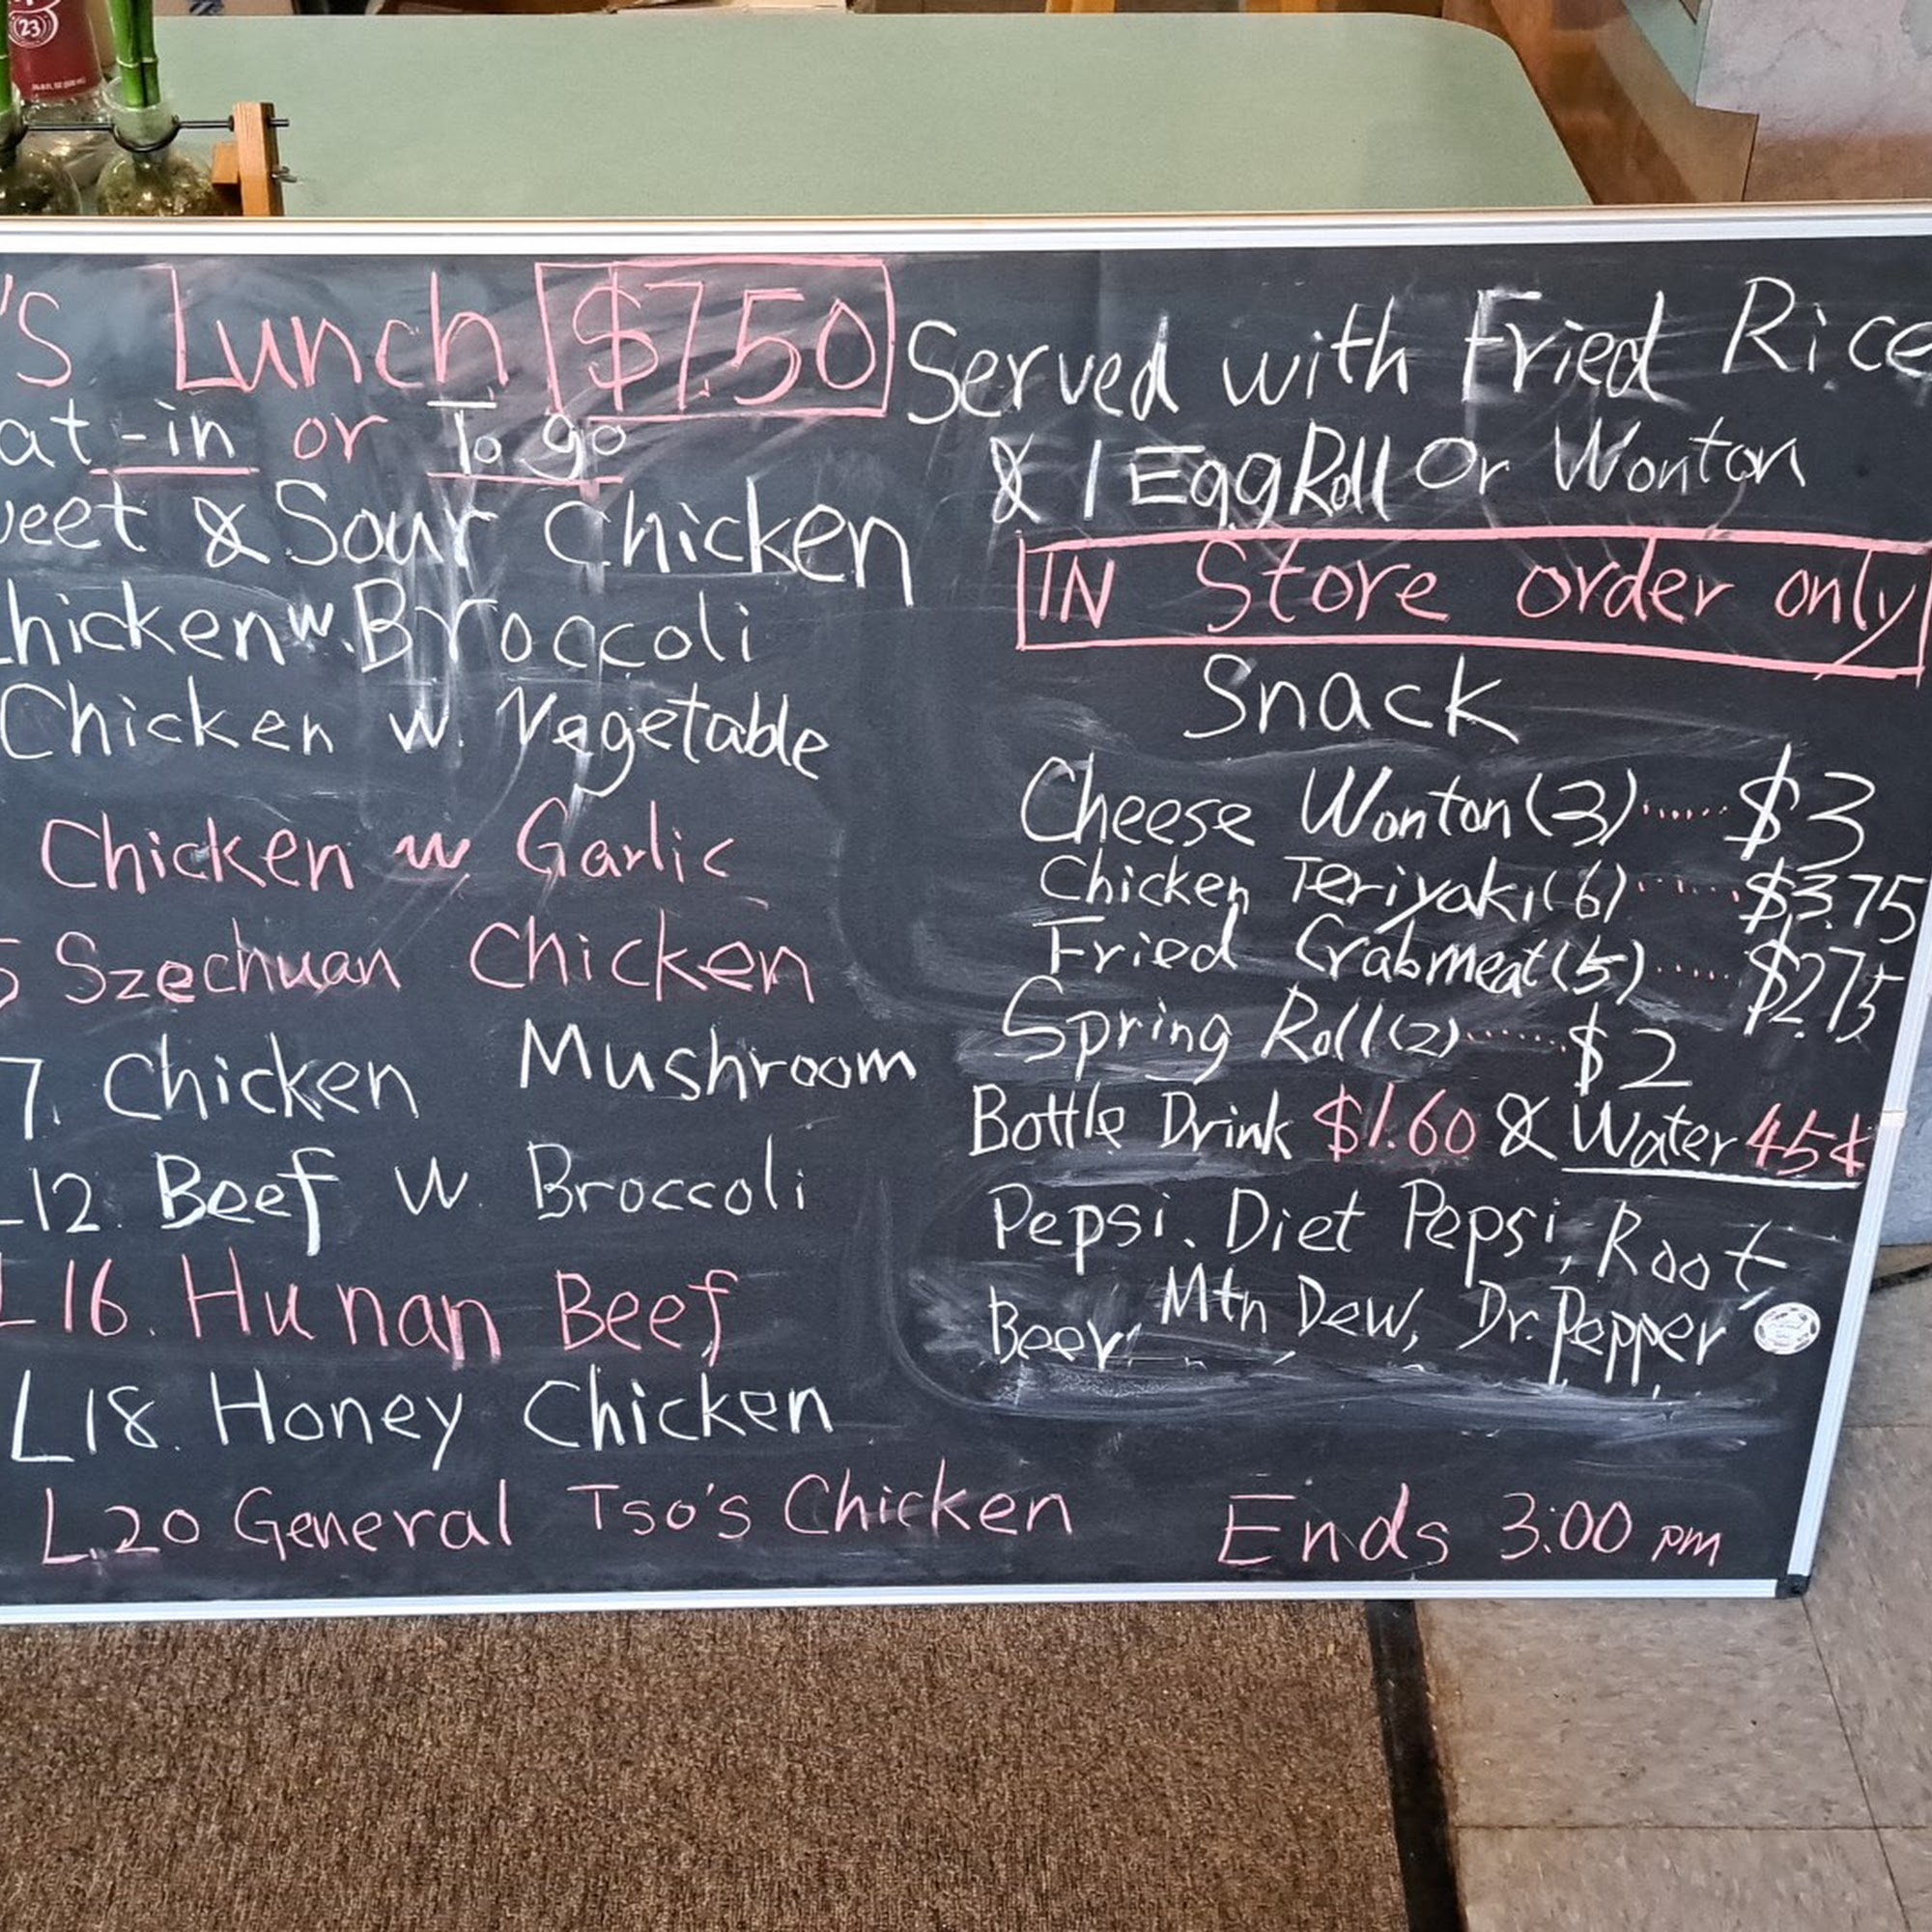 23
's Lunch $7.50
at-in or To go
eet & Sour Chicken
hicken w. Broccoli
Chicken w. Vegetable
Chicken w Garlic
5 Szechuan Chicken
7. Chicken Mushroom
L12. Beef w. Broccoli
L16. Hunan Beef
L18. Honey Chicken
L20 General Tso's Chicken
Served with Fried Rice
& 1 Egg Roll Or Wonton
IN Store order only
Snack
Cheese Wonton (3)······$3
Chicken Teriyaki (6)······$3.75
Fried Crabmeat (5)·····$2.75
Spring Roll (2)·······$2
Bottle Drink $1.60 & Water 45¢
Pepsi, Diet Pepsi, Root
Beer, Mtn Dew, Dr. Pepper
Ends 3:00 pm